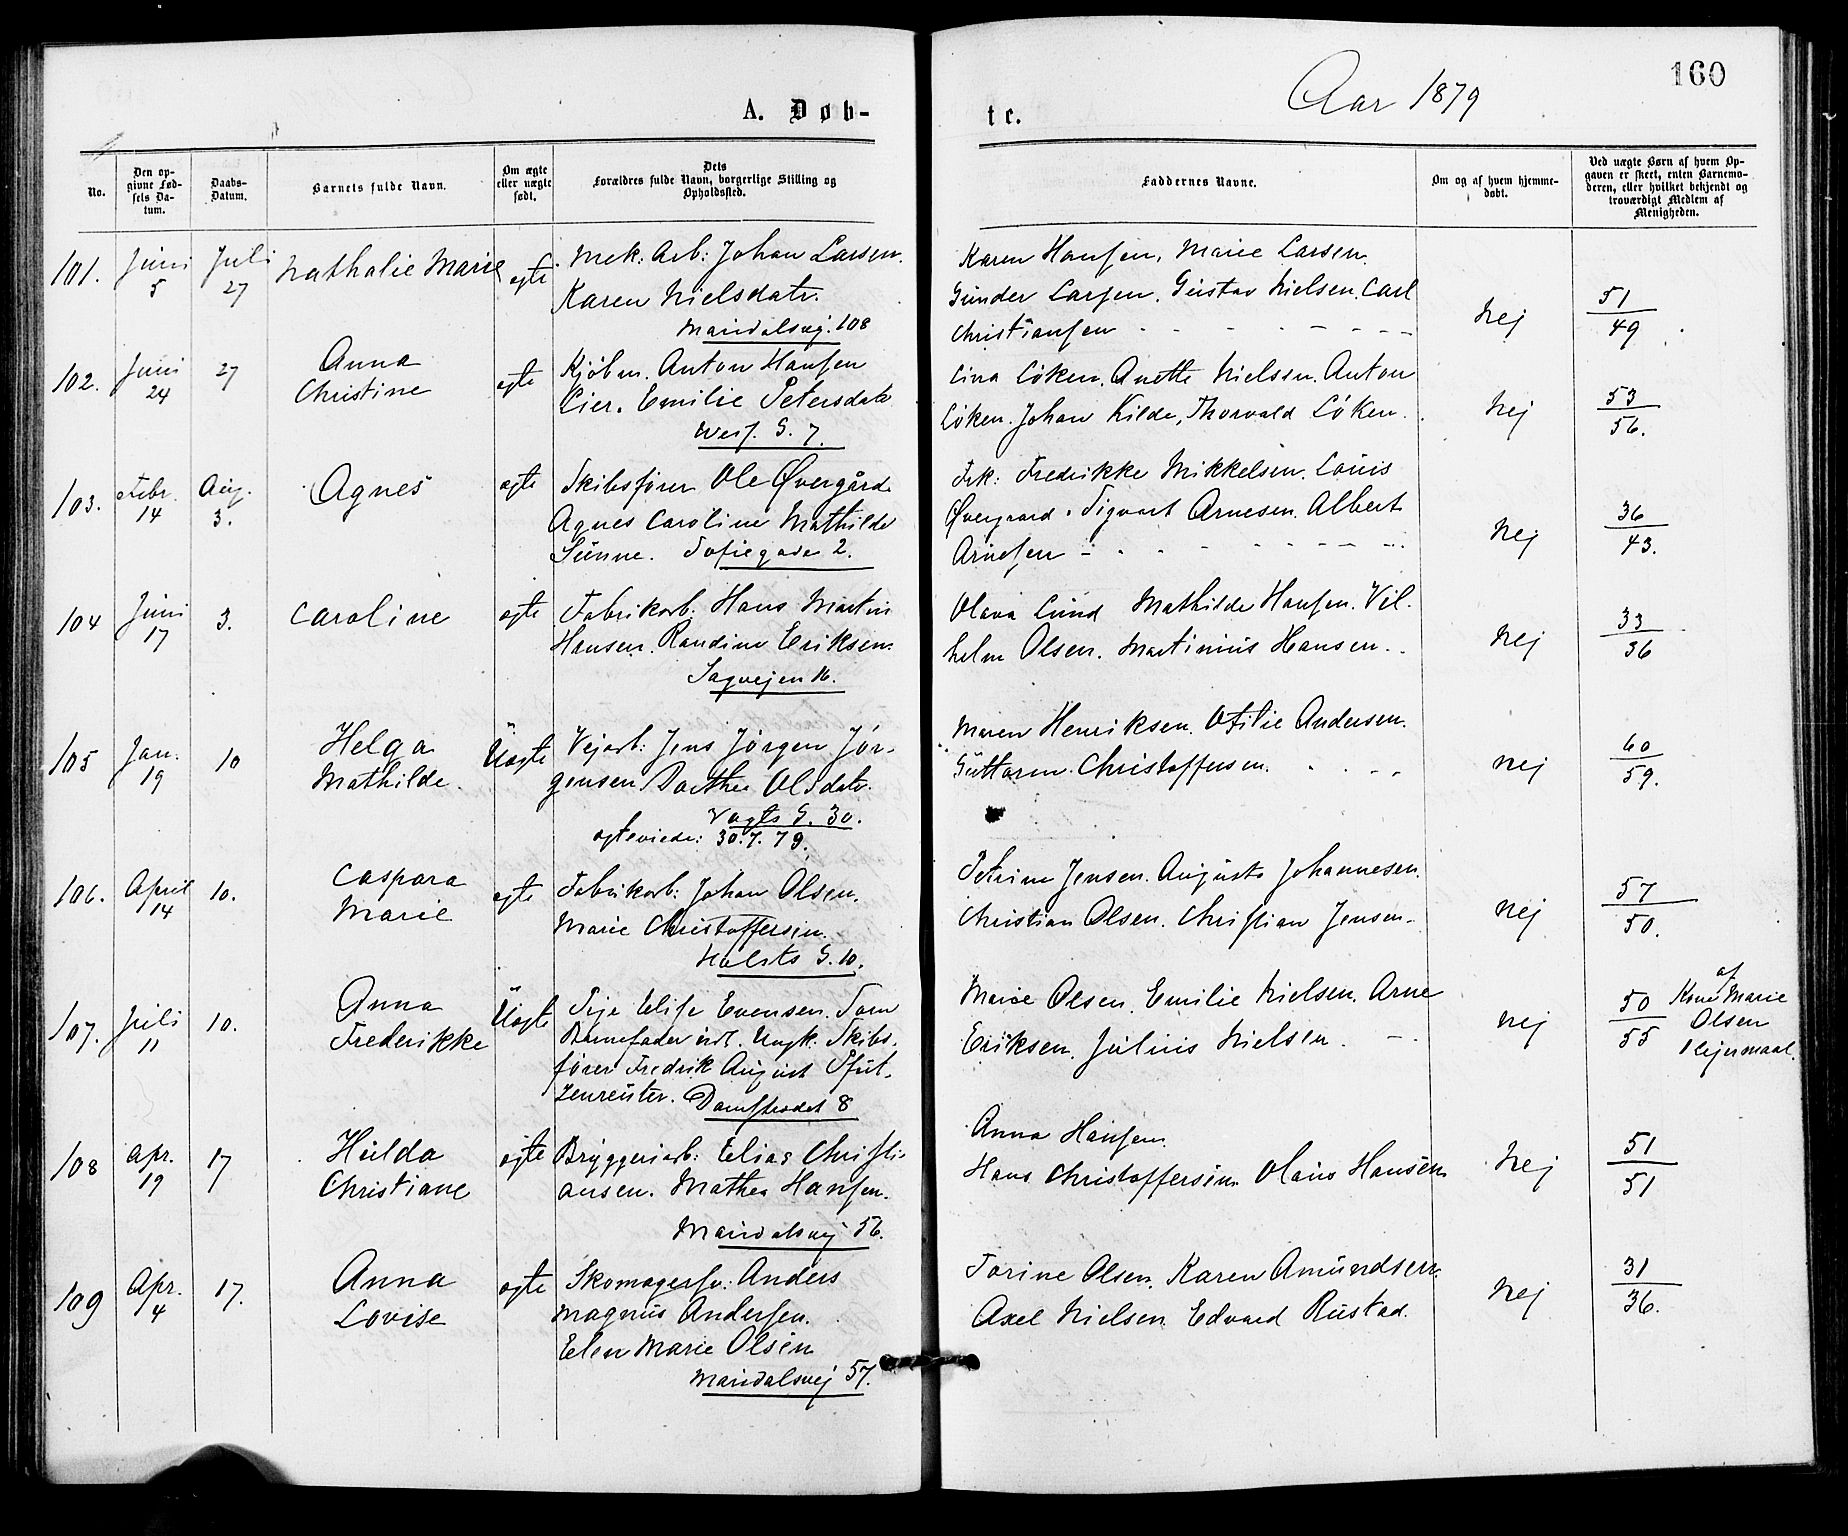 160
Aar 1879
A. Døb-
te.
No.
Den op-
givne Fød-
sels Da-
tum.
Daabs-
Datum.
Barnets fulde Navn.
Om ægte
eller uægte
født.
Dets
Forældres fulde Navn, borgerlige Stilling og
Opholdssted.
Faddernes Navne.
Om og af hvem hjemme-
døbt.
Ved uægte Børn af hvem Op-
gaven er skeet, enten Barnemo-
deren, eller hvilket bekjendt og
troværdigt Medlem af
Menigheden.
101.
Juni
5
Juli
27
Nathalie Marie
ægte
Mek: Arb: Johan Larsen.
Karen Nielsdatr.
Maridalsvej. 108
Karen Hansen, Marie Larsen.
Gunder Larsen. Gustav Nielsen. Carl
Christiansen
Nej
51
49
102.
Juni
24
27
Anna
Christine
ægte
Kjøbm. Anton Hansen
Lier. Emilie Petersdatr
Wess. G. 7.
Lina Løken. Anette Nielsen. Anton
Løken. Johan Kilde, Thorvald Løken.
Nej
53
56.
103.
Febr.
14
Aug.
3.
Agnes
ægte
Skibsfører Ole Øvergård
Agnes Caroline Mathilde
Sünne. Sofiegade 2.
Frk: Fredrikke Mikkelsen. Louis
Øvergaard. Sigvart Arnesen. Albert
Arnesen
Nej
36
43.
104
Juni
17
3.
Caroline
ægte
Fabrikarb. Hans Martin
Hansen. Randine Eriksen.
Sagvejen 16.
Olava Lund Mathilde Hansen. Vil-
helm Olsen. Martinius Hansen.
Nej
33
36
105
Jan.
19
10
Helga
Mathilde.
Uægte
Vejarb: Jens Jørgen Jør-
gensen. Dorthea Olsdatr.
Vogts G. 30.
ægteviede: 30.7.79.
Maren Henriksen. Otilie Andersen.
Guttorm. Christoffersen.
nej
60
59.
106.
April
14
10.
Caspara
Marie
ægte
Fabrikarb: Johan Olsen.
Marie Christoffersen.
Holsts G. 10.
Petrine Jensen. Augusta Johannesen.
Christian Olsen. Christian Jensen.
nej
57
50.
107.
Juli
11
10.
Anna
Frederikke
Uægte
Pige Elise Evensen. Som
Barnefader udl. Ungk. Skibs-
fører Fredrik August Pfut-
zenreuter. Damstredet 8
Marie Olsen. Emilie Nielsen. Arne
Eriksen. Julius Nielsen.
nej
50
55
af
Kone Marie
Olsen
1 Lejermaal.
108
Apr.
19
17
Hulda
Christiane
ægte
Bryggeriarb: Elias Christi-
ansen. Mathea Hansen.
Maridalsvej 56.
Anna Hansen.
Hans Christoffersen. Olaus Hansen
Nej
51
51
109
Apr.
4
17.
Anna
Lovise
ægte
Skomagersv: Anders
Magnus Andersen.
Elen Marie Olsen
Maridalsvej 57.
Torine Olsen. Karen Amundsen.
Axel Nielsen Edvard Rustad.
Nej
31
36.